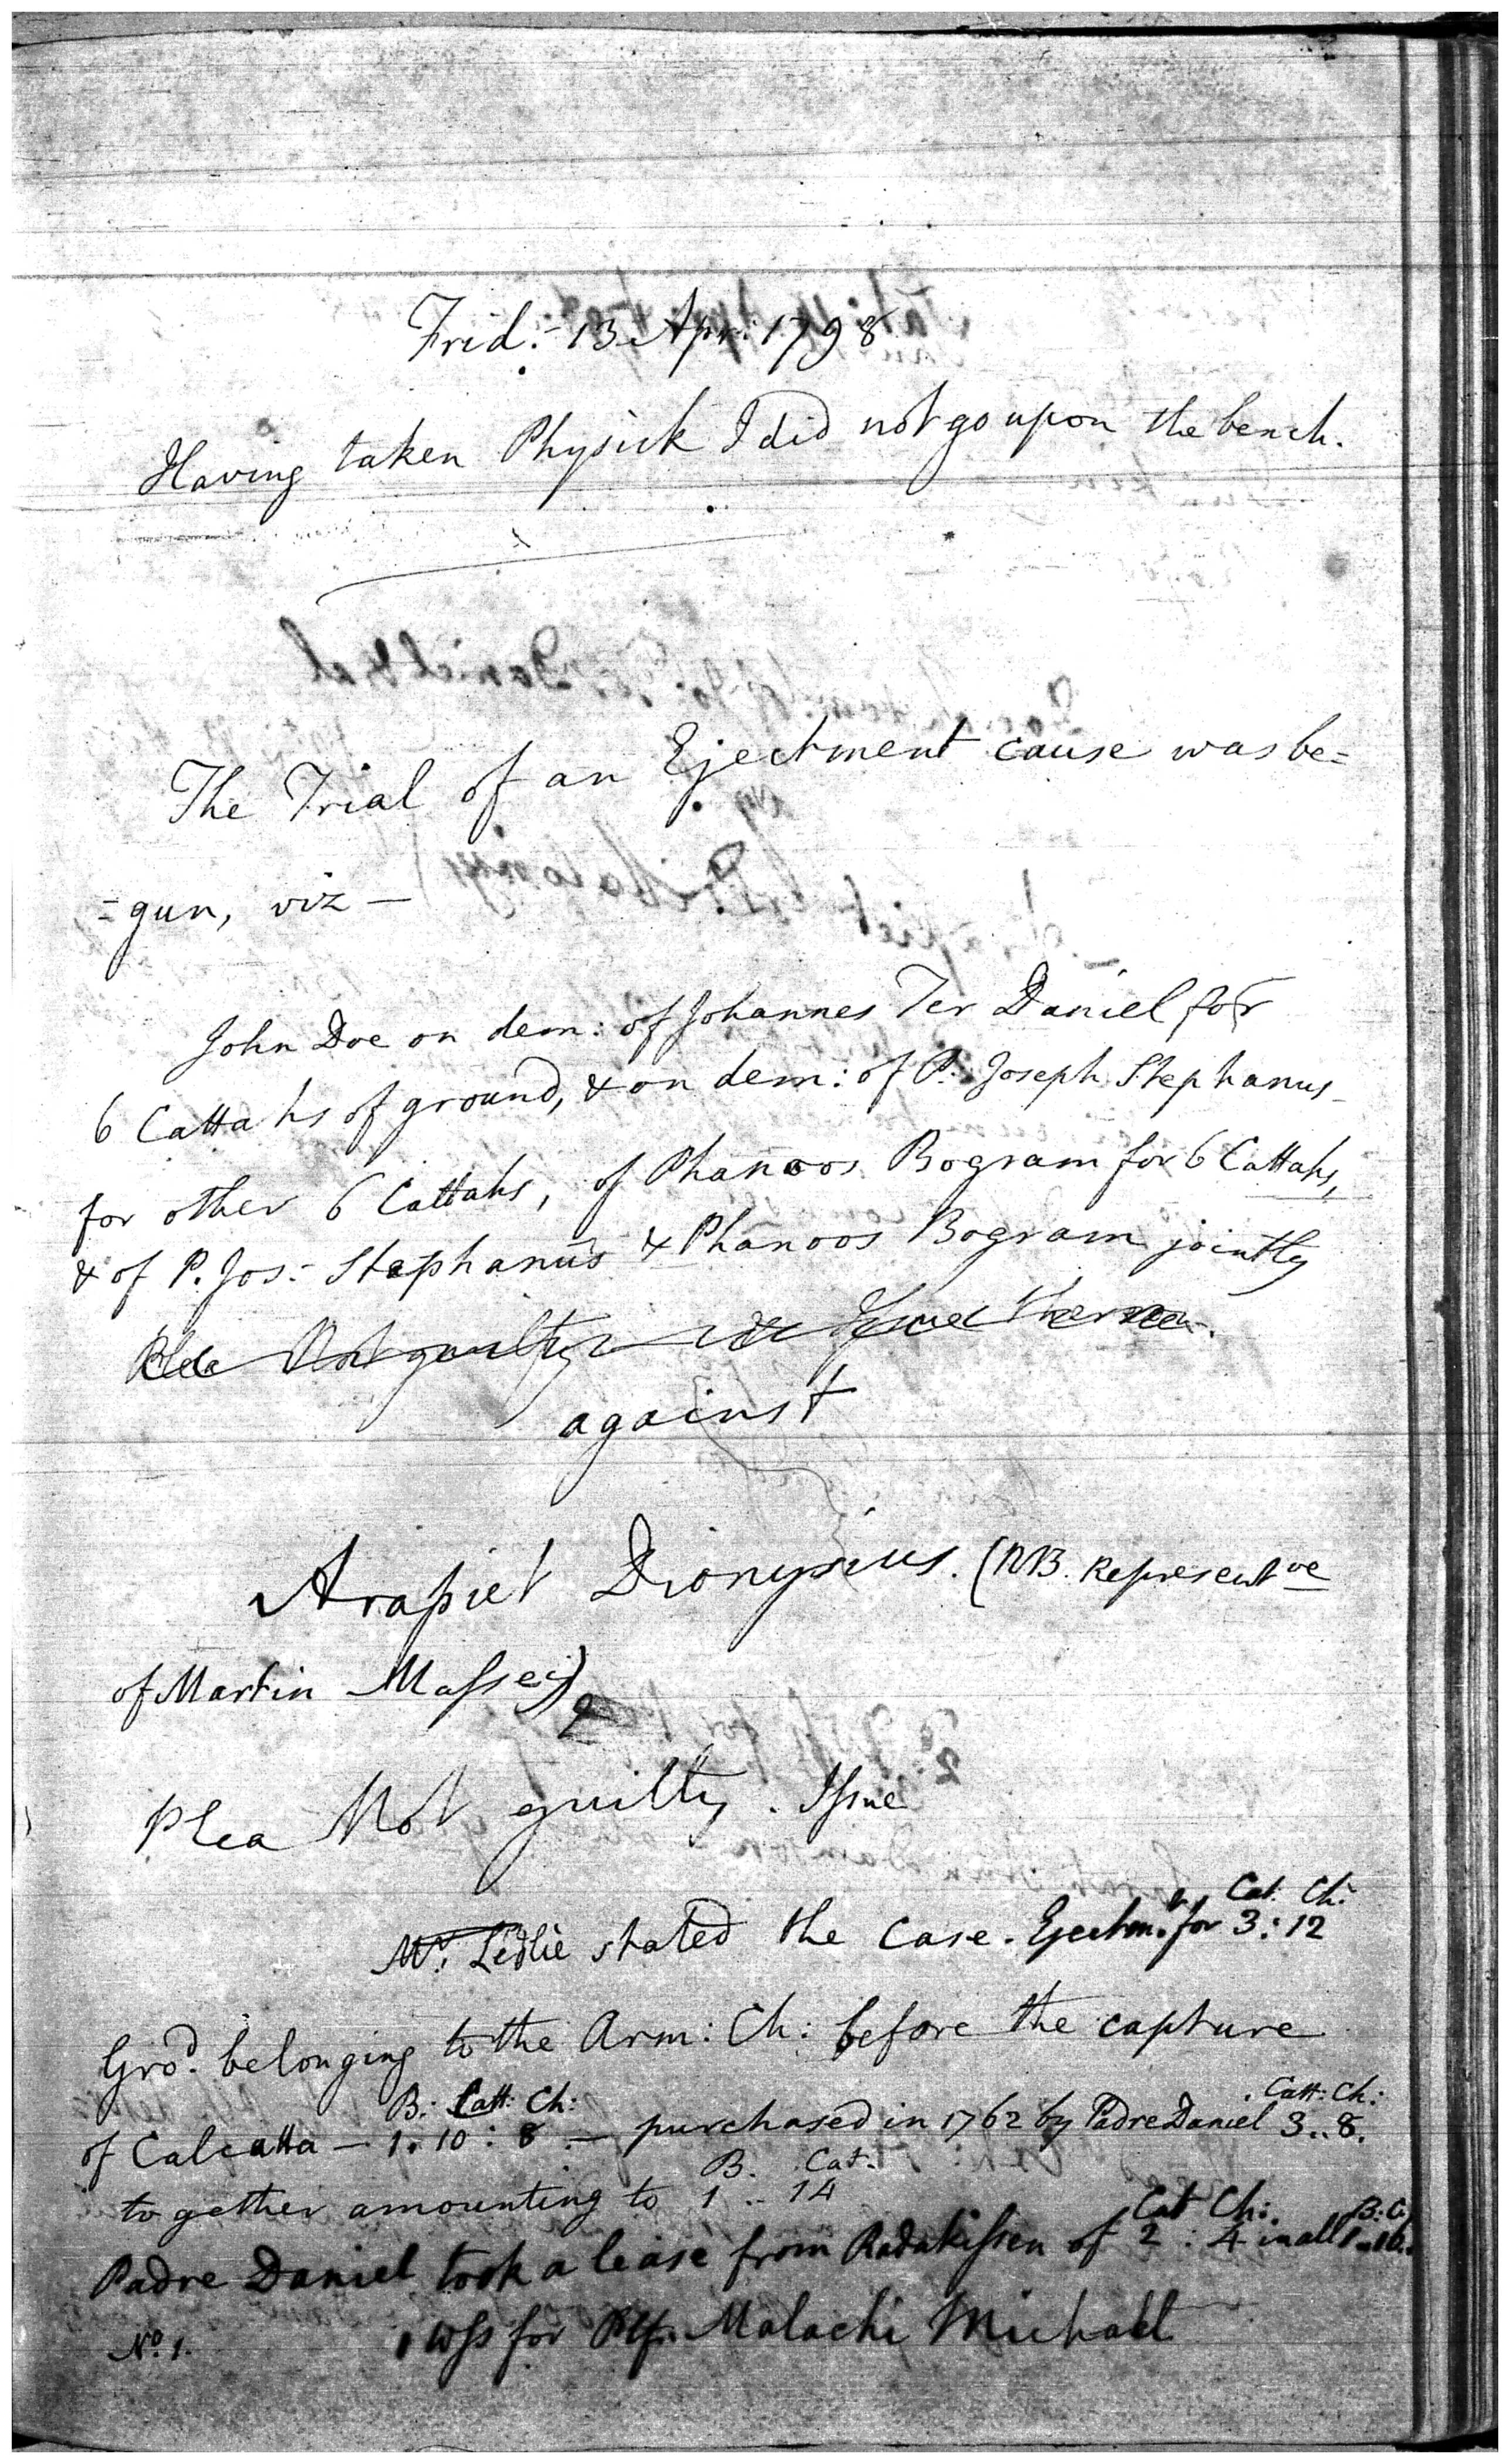 Frid:- 13 Apr: 1798
Having taken Physick I did not go upon the bench.
The Trial of an Ejectment cause was be=
=gun, viz —
John Doe on dem: of Johannes Ter Daniel for
6 Cattahs of ground, & on dem: of P. Joseph Stephanus
for other 6 Cattahs, of Phanoos Bogram for 6 Cattahs,
& of P. Jos:- Stephanus & Phanoos Bogram jointly
Plea Not guilty & Issue thereon.
against
Arapiet Dionysius. (NB. Represent.ve
of Martin Massei)
Plea Not guilty. Issue
Cat: Ch:
Mr. Ledlie stated the Case. Ejectm.t for 3: 12
Gro.d belonging to the Arm: Ch: before the capture
B: Catt: Ch: Catt: Ch:
of Calcatta — 1. 10: 8 — purchased in 1762 by Padre Daniel 3..8.
B. Cat.
together amounting to 1 .. 14
Cat Ch: B: C
Padre Daniel took a lease from Radakissen of 2 : 4 in all
No. 1. 1 Wss for Plf. Malachi Michael